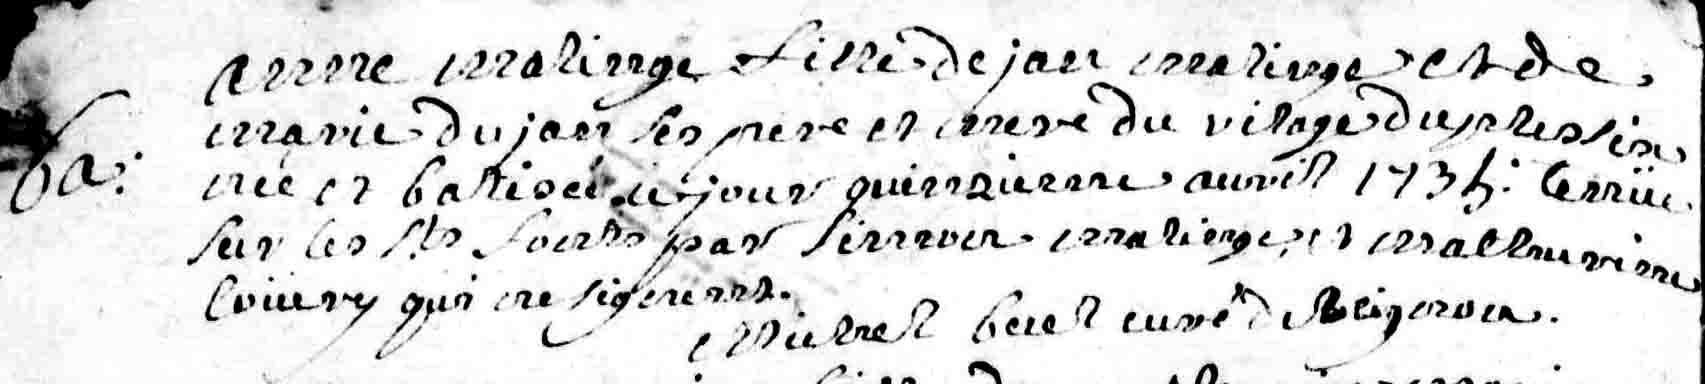 anne malinge fille de jan malinge et de
marie dujan ses pere et mere du vilage du plessix
ba: née et batisée ce jour quinzieme auvril 1735: tenüe
sur les sts fonts par simon malinge et mathurine
qui ne signent.
Michel curé de